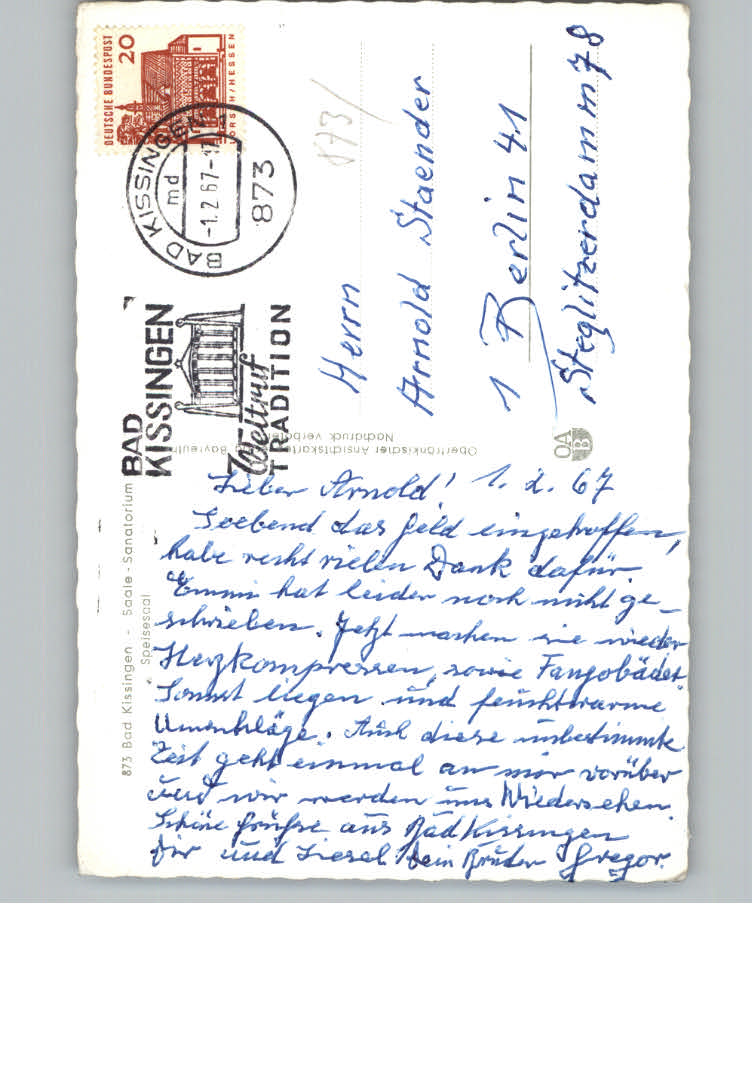 DEUTSCHE BUNDESPOST
20
LORSCH/HESSEN
BAD KISSINGEN
md
-1.2.67-17
873
BAD
KISSINGEN
Weltruf
TRADITION
873/
Herrn
Arnold Staender
1 Berlin 41
Steglitzerdamm 78
Oberfränkischer Ansichtskarten Bayreuth
Nachdruck verboten
OA
B
873 Bad Kissingen - Saale-Sanatorium
Speisesaal
Lieber Arnold! 1. 2. 67
Soebend das Geld eingetroffen,
habe recht vielen Dank dafür.
Emmi hat leider noch nicht ge-
schrieben. Jetzt machen sie wieder
Herzkompressen, sowie Fangobäder
Sonst liegen und feuchtwarme
Umschläge. Auch diese unbestimmte
Zeit geht einmal an mir vorüber
und wir werden uns Wiedersehen.
Schöne Grüße aus Bad Kissingen
Dir und Liesel Dein Bruder Gregor.